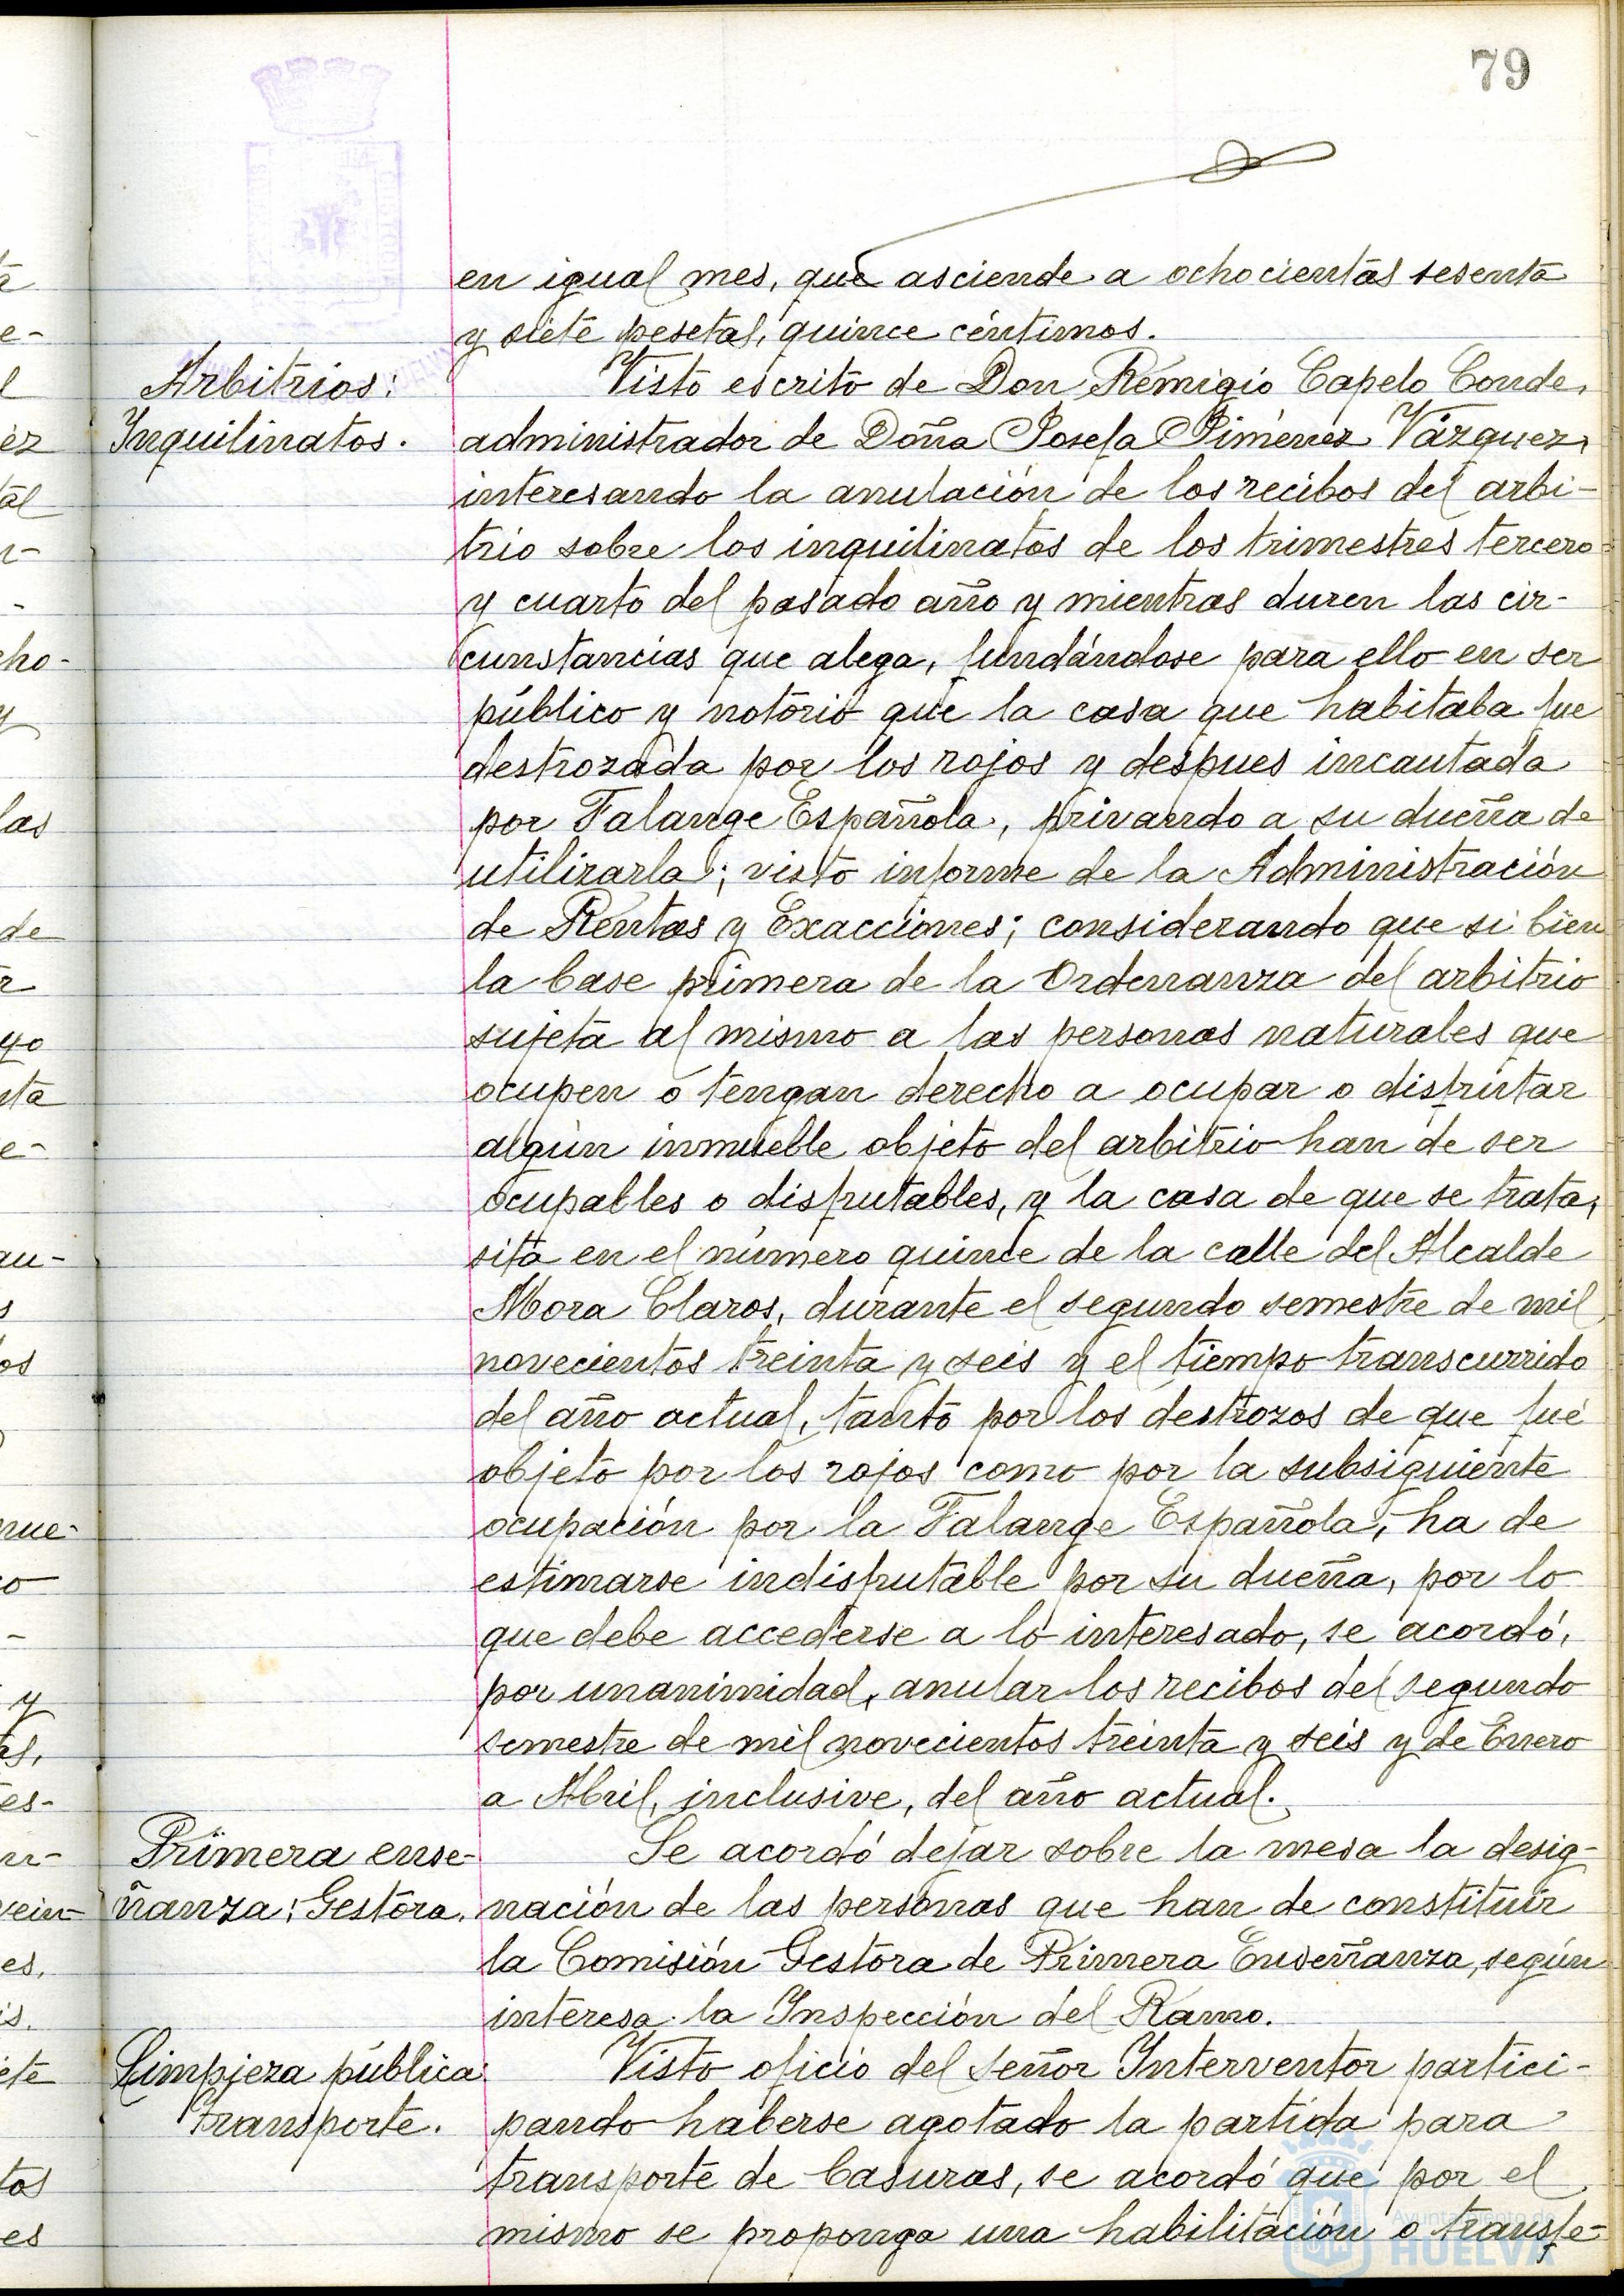 79
en igual mes, que asciende a ochocientas sesenta
y siete pesetas, quince céntimos.
Arbitrios:
Inquilinatos.
Visto escrito de Don Remigio Capelo Conde,
administrador de Doña Josefa Jiménez Vázquez,
interesando la anulación de los recibos del arbi-
trio sobre los inquilinatos de los trimestres tercero
y cuarto del pasado año y mientras duren las cir-
cunstancias que alega, fundándose para ello en ser
público y notorio que la casa que habitaba fue
destrozada por los rojos y despues incautada
por Falange Española, privando a su dueña de
utilizarla; visto informe de la Administración
de Rentas y Exacciones; considerando que si bien
la base primera de la Ordenanza del arbitrio
sujeta al mismo a las personas naturales que
ocupen o tengan derecho a ocupar o disfrutar
algún inmueble objeto del arbitrio han de ser
ocupables o disfrutables, y la casa de que se trata,
sita en el número quince de la calle del Alcalde
Mora Claros, durante el segundo semestre de mil
novecientos treinta y seis y el tiempo transcurrido
del año actual, tanto por los destrozos de que fué
objeto por los rojos como por la subsiguiente
ocupación por la Falange Española, ha de
estimarse indisfrutable por su dueña, por lo
que debe accederse a lo interesado, se acordó,
por unanimidad, anular los recibos del segundo
semestre de mil novecientos treinta y seis y de Enero
a Abril, inclusive, del año actual.
Primera ense-
ñanza: Gestora.
Se acordó dejar sobre la mesa la desig-
nación de las personas que han de constituir
la Comisión Gestora de Primera Enseñanza, según
interesa la Inspección del Ramo.
Limpieza pública:
Transporte.
Visto oficio del señor Interventor partici-
pando haberse agotado la partida para
transporte de basuras, se acordó que por el
mismo se proponga una habilitación o transfe-
Ayuntamiento de
HUELVA